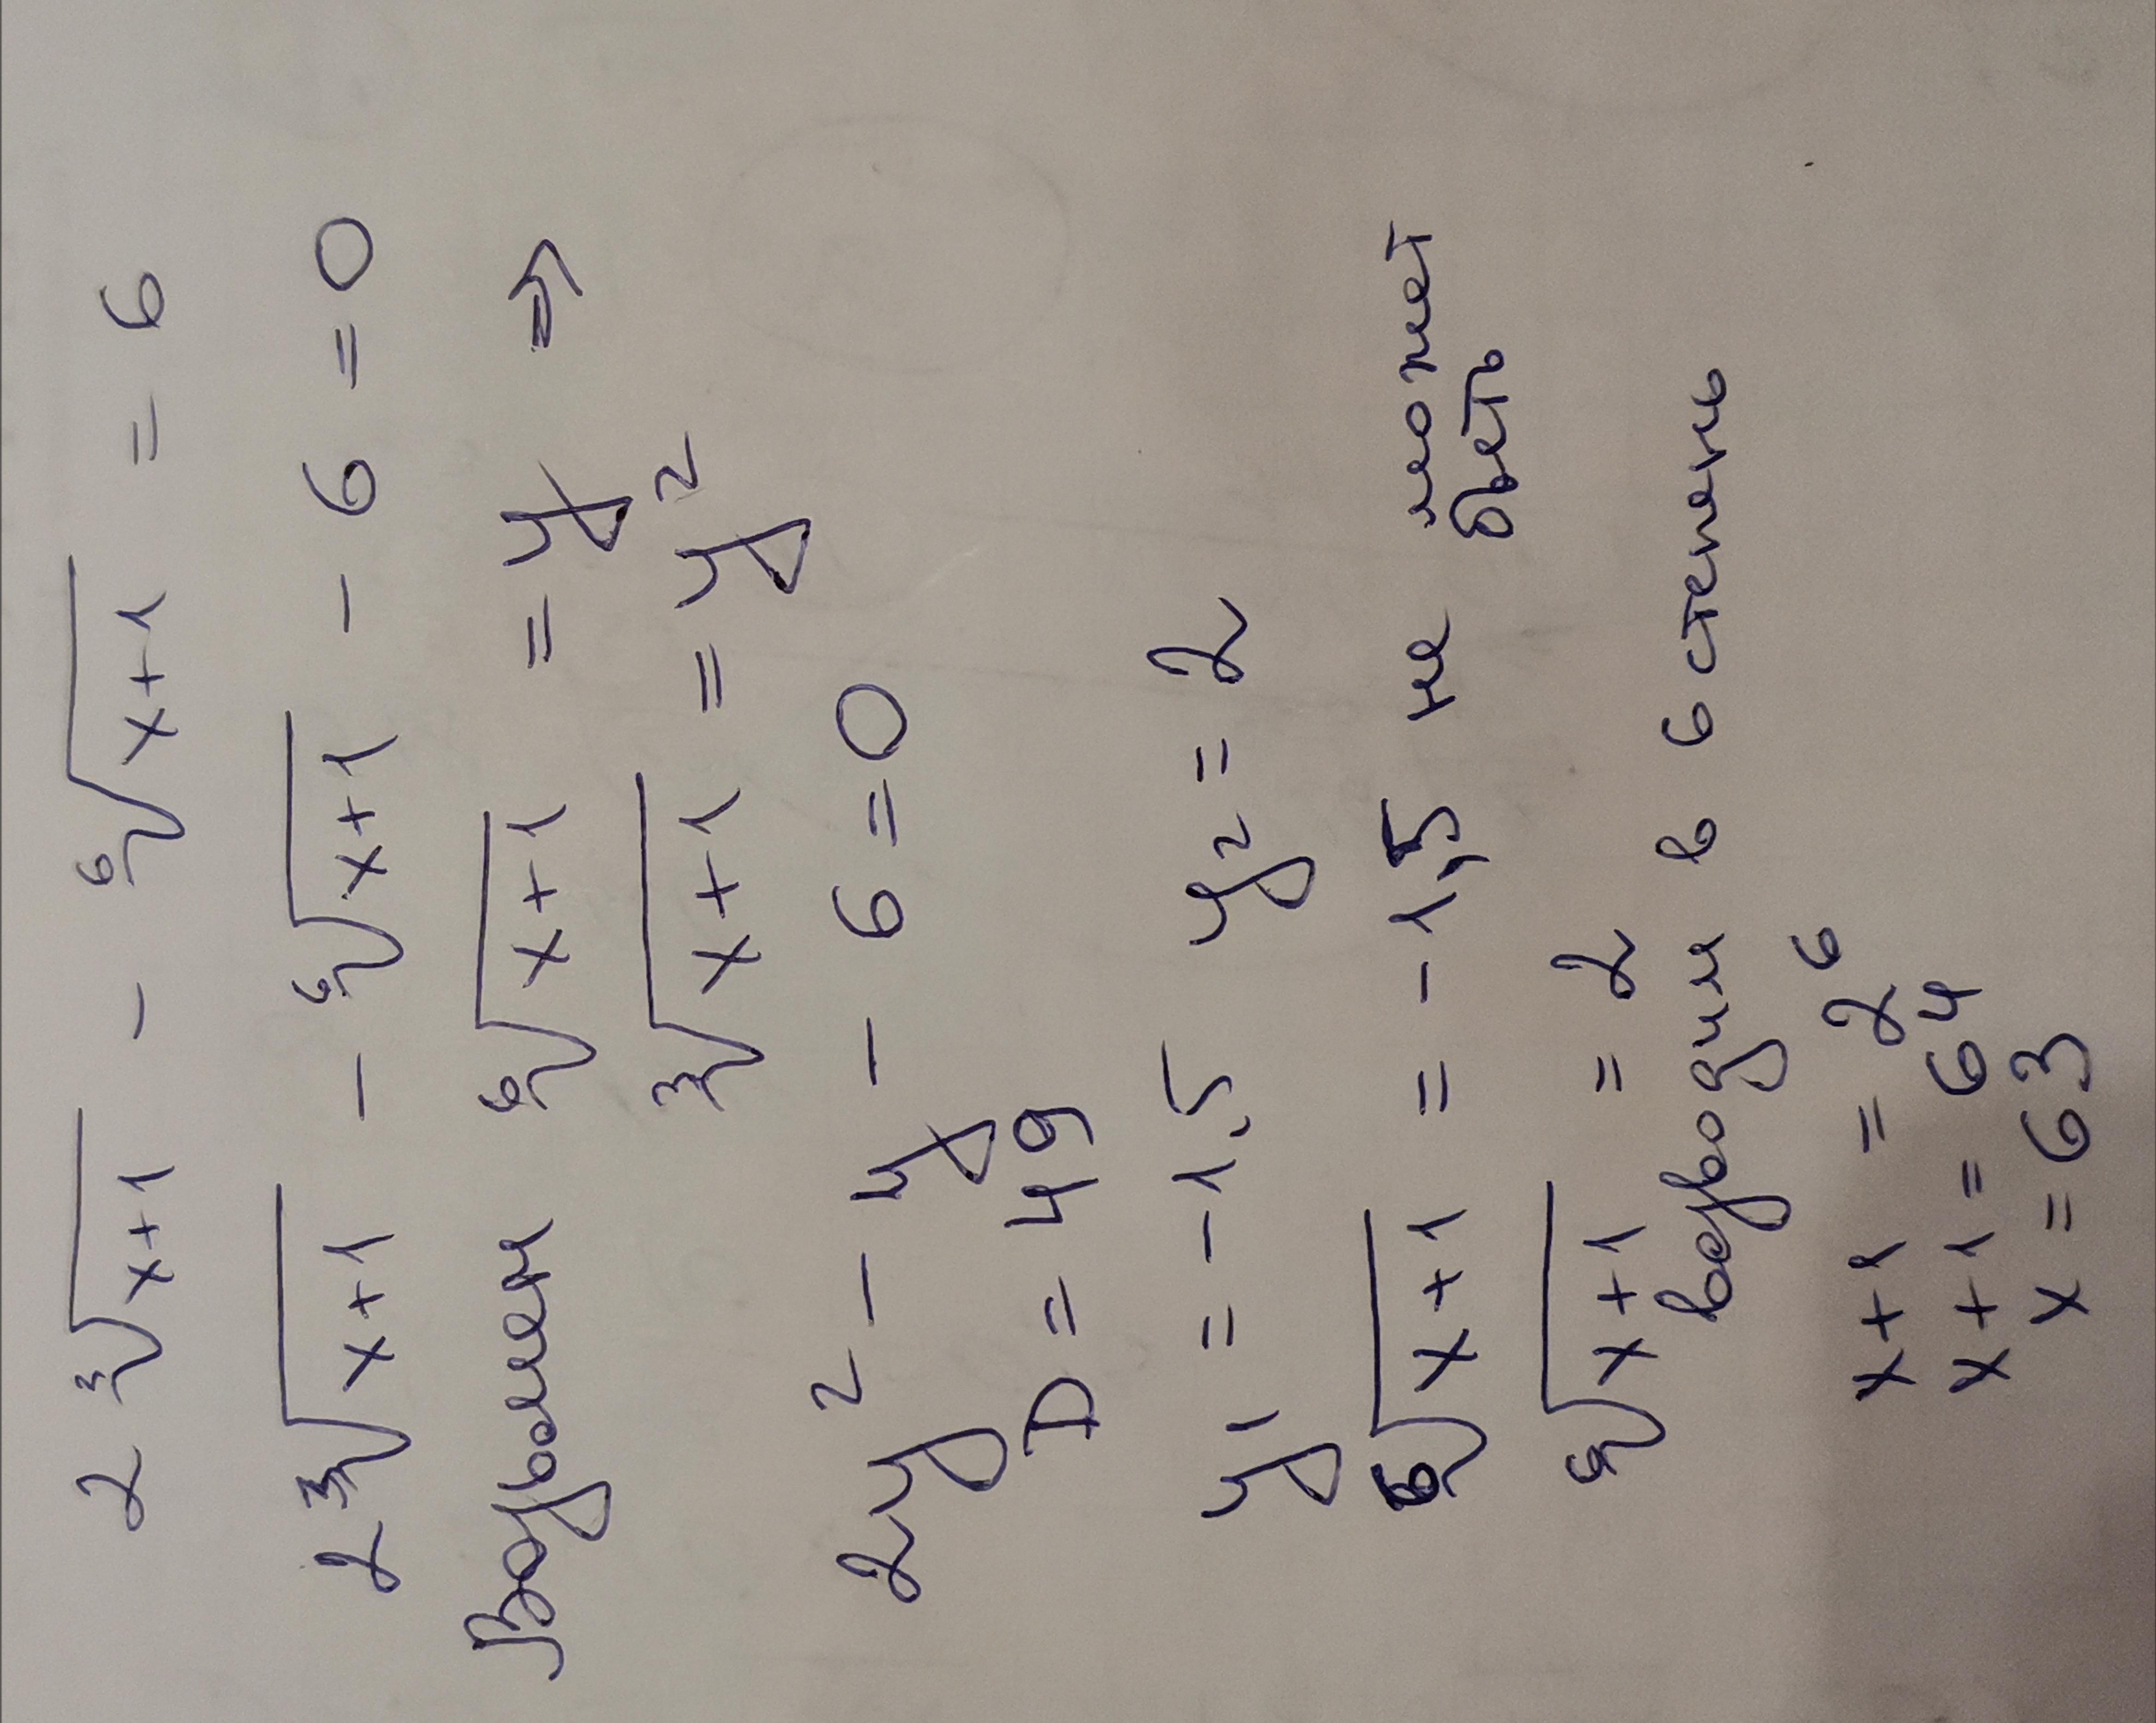 2 ∛(x+1) - ⁶√(x+1) = 6
2 ∛(x+1) - ⁶√(x+1) - 6 = 0
Возьмем ⁶√(x+1) = y ⇒
∛(x+1) = y²
2y² - y - 6 = 0
D = 49
y₁ = -1,5 y₂ = 2
⁶√(x+1) = -1,5 не может
быть
⁶√(x+1) = 2
возводим в 6 степень
x+1 = 2⁶
x+1 = 64
x = 63